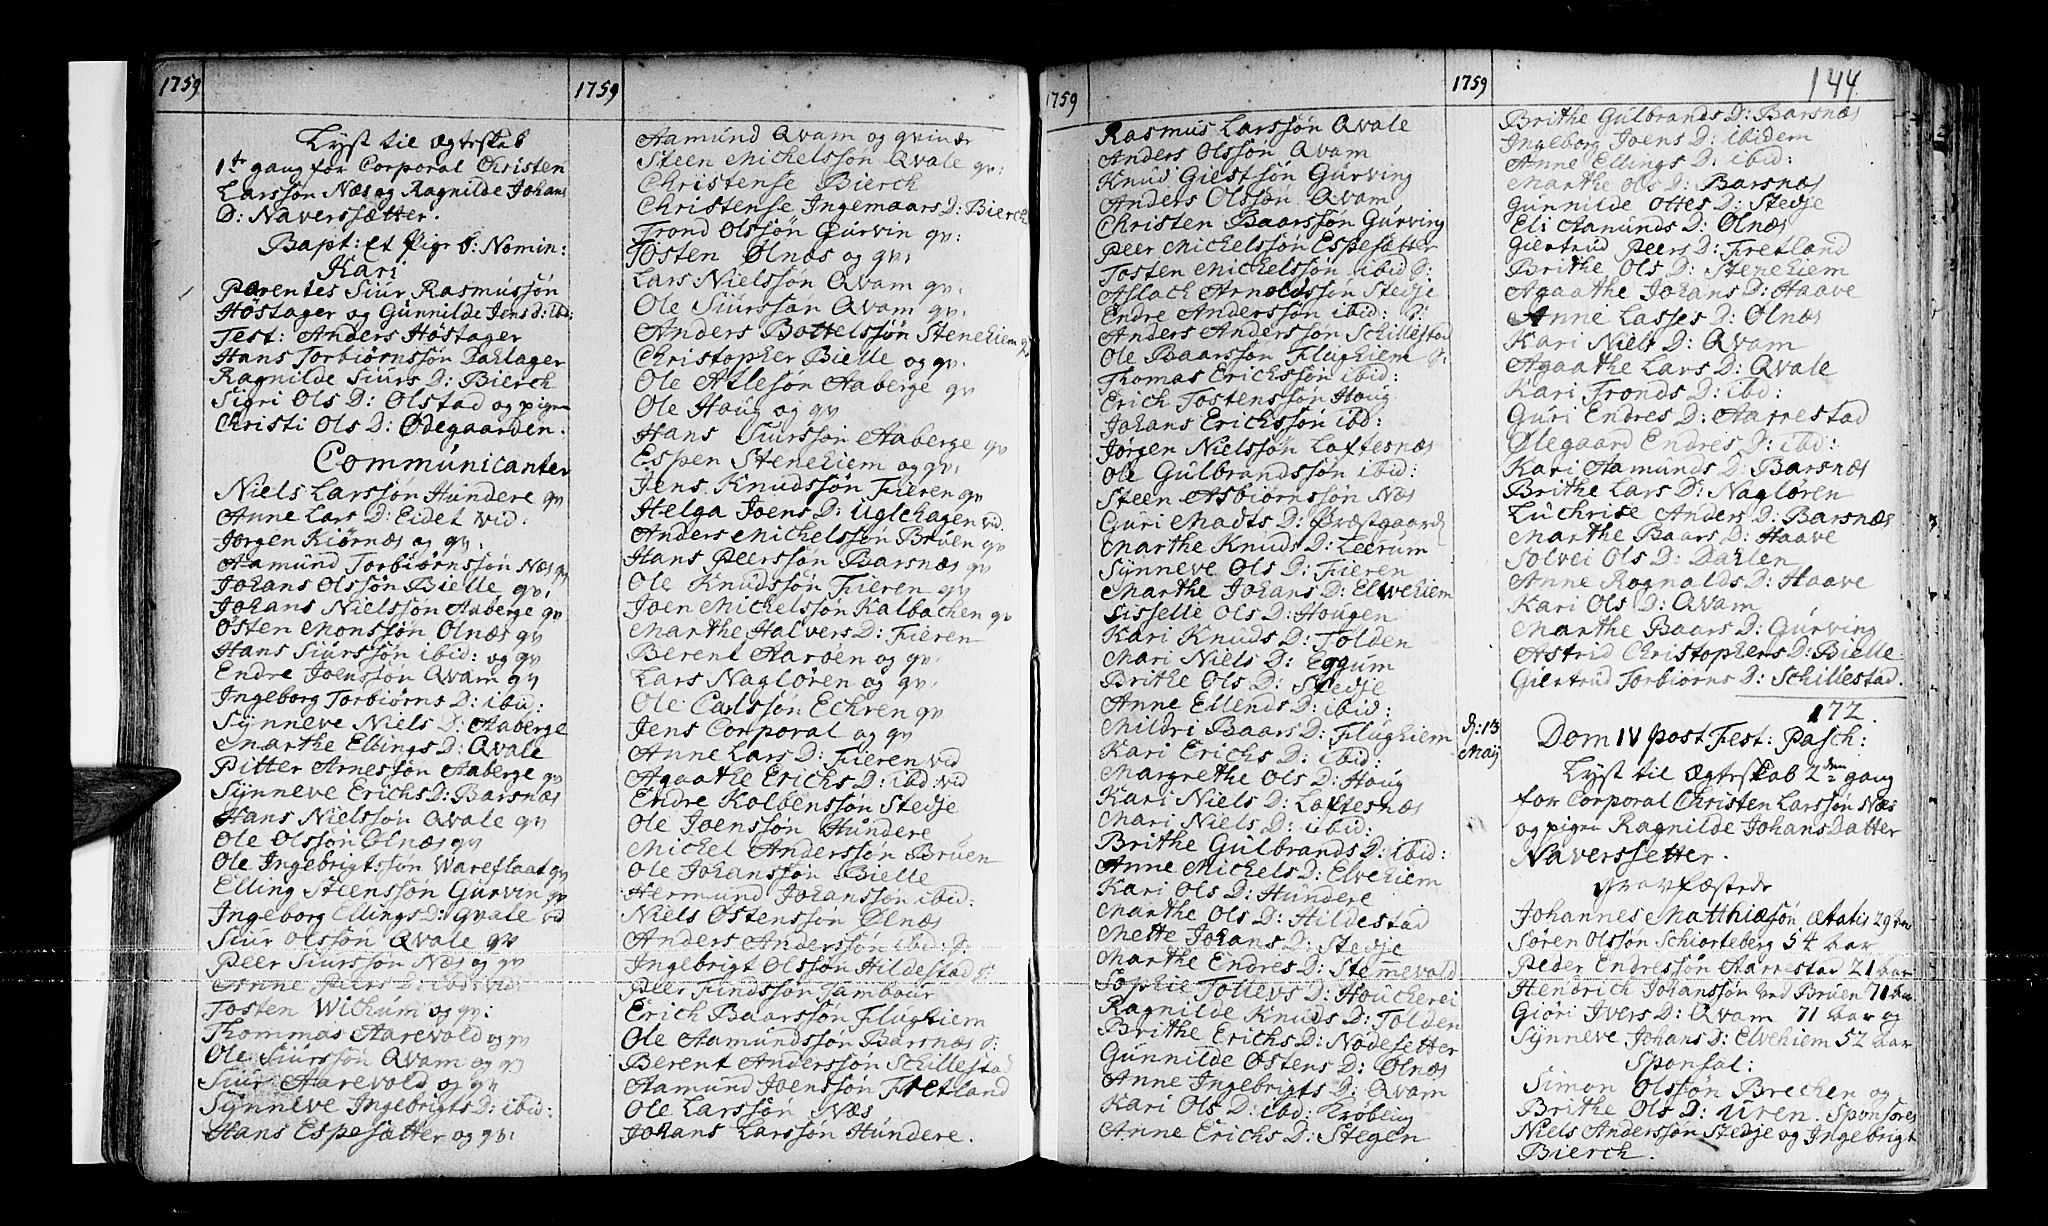 1759
Lyst til Ægteskab
1te gang for Corporal Christen
Larssøn Næs og Ragnilde Johans
D: Naverssætter.
Bapt: et Pige b: Nomin:
Kari
Parentes Siur Rasmussøn
Höstager og Gunnilde Jens d: ibd:
Test: Anders Höstager
Hans Torbiørnssøn Dahlager
Ragnilde Siurs D: Bierch
Sigri Ols D: Olstad og pigen
Christi Ols D: Ødegaarden.
Communicanter
Niels Larssøn Hundere qv
Anne Lars D: Eidet vid:
Jørgen Kiørnæs og qv.
Aamund Torbiørnssøn Næs qv
Johans Olssøn Bielle qv,
Johans Nielssøn Aaberge qv
Østen Monssøn Olnæs qv
Hans Siurssøn ibid: og qv
Endre Joenssøn Qvam qv
Ingeborg Torbiørns D: ibid:
Synneve Niels D: Aaberge
Marthe Ellings D: Qvale
Pitter Arnessøn Aaberge qv
Synneve Erichs D: Barsnæs
Hans Nielssøn Qvale qv
Ole Olssøn Ølnæs qv
Ole Ingebrigtssøn Wareflaat qv
Elling Steenssøn Gurvin qv
Ingeborg Ellings D: Qvale vd
Siur Olssøn Qvale qv
Peer Siurssøn Næs og qv
Anne Peers D: ibd vid:
Tosten Wichum og qv:
Thommas Aarevold og qv
Ole Siurssøn Qvam og qv
Siur Aarevold og qv
Synneve Ingebrigts D: ibid:
Hans Espesætter og qv:
1759
Aamund Qvam og qvinde
Steen Michelssøn Qvale qv:
Christense Bierch
Christense Ingemaars D: Bierch
Trond Olssøn Gurvin qv:
Tosten Ølnæs og qv:
Lars Nielssøn Qvam qv:
Ole Siurssøn Qvam qv:
Anders Bottelssøn Stenehiem qv
Christopher Bielle og qv.
Ole Atlesøn Aaberge qv
Ole Haug og qv
Hans Siurssøn Aaberge qv
Espen Stenehiem og qv:
Jens Knudssøn Fieren qv
Helga Joens D: Uglehagen vid
Anders Michelssøn Bruen qv
Hans Peerssøn Barsnæs qv
Ole Knudssøn Fieren qv
Joen Michelssøn Kalbachen qv
Marthe Halvers D: Fieren
Berent Aarøen og qv:
Lars Nagløren og qv:
Ole Carlssøn Echren qv
Jens Corporal og qv
Anne Lars D: Fieren vid
Agaathe Erichs D: ibd vid
Endre Kolbenssøn Stedje
Ole Joenssøn Hundere
Michel Anderssøn Bruen
Ole Johanssøn Bielle
Hermund Johanssøn ibid:
Niels Østenssøn Ølnæs
Anders Anderssøn ibid: D:
Ingebrigt Olssøn Hildestad D:
Peer Findssøn Tambour
Erich Baarssøn Flughiem
Ole Aamundssøn Barsnæs D:
Berent Anderssøn Schillestad
Aamund Joenssøn Fretland
Ole Larssøn Næs
Johans Larssøn Hundere.
1759
Rasmus Larssøn Qvale
Anders Olssøn Qvam
Knud Giestsøn Gurving
Anders Olssøn Qvam
Christen Baarssøn Gurving
Peer Michelssøn Espesætter
Tosten Michelssøn ibid D:
Aslach Arnoldssøn Stedje
Endre Anderssøn ibid: D:
Anders Anderssøn Schillestad
Ole Baarssøn Flughiem D:
Thomas Erichssøn ibid:
Erich Tostenssøn Houg
Johans Erichssøn ibd:
Jørgen Nielssøn Loftesnæs
Ole Gulbrandssøn ibid:
Steen Asbiørnssøn Næs
Guri Madts D: Præstgaard
Marthe Knuds D: Leerum
Synneve Ols D: Fieren
Marthe Johans D: Elvehiem
Lisselle Ols D: Hougen
Kari Knuds D: Tolden
Mari Niels D: Eggum
Brithe Ols D: Stedje
Anne Ellends D: ibid:
Mildri Baars D: Flughiem
Kari Erichs D: ibid:
Margrethe Ols D: Houg
Kari Niels D: Loftesnæs
Mari Niels D: ibid:
Brithe Gulbrands D: ibid:
Anne Michels D: Elvehiem
Kari Ols D: Hundere
Marthe Ols D: Hildestad
Mette Johans D: Stedje
Marthe Endres D: Stemmevold
Sophie Tollevs D: Houcherei
Ragnilde Knuds D: Tolden
Brithe Erichs D: Nodesetter
Gunnilde Østens D: Ølnæs
Anne Ingebrigts D: Qvam
Kari Ols D: ibd:
Anne Erichs D: Stegen
1759
144
Brithe Gulbrands D: Barsnæs
Ingeborg Joens D: ibidem
Anne Ellings D: ibid:
Marthe Ols D: Barsnæs
Gunnilde Ottes D: Stedje
Eli Aamunds D: Olnæs
Giertrud Peers D: Fretland
Brithe Ols D: Stenehiem
Agaathe Johans D: Haave
Anne Lasses D: Ølnæs
Kari Niels D: Qvam
Agaathe Lars D: Qvale
Kari Tronds D: ibid:
Guri Endres D: Aarrestad
Ølegaard Endres D: ibid:
Kari Aamunds D: Barsnæs
Brithe Lars D: Nagløren
Luchrise Anders D: Barsnæs
Marthe Baars D: Haave
Solvei Ols D: Dahlen
Anne Rognalds D: Haave
Kari Ols D: Qvam
Marthe Baars D: Gurving
Astrid Christophers D: Bielle
Giertrud Torbiørns D: Schillestad.
172.
D: 13
Maij
Dom IV post Fest: Pasch:
Lyst til Ægteskab 2den gang
for Corporal Christen Larssøn Næs
og pigen Ragnilde Johans Datter
Naverssetter.
Gravfæstede
Johannes Matthiæsøn ætatis 29 bar
Søren Olssøn Schiorteberg 54 bar
Peder Endressøn Aarrestad 21 bar
Hendrich Johanssøn ved Bruen 71 bar
Giøri Ivers D: Qvam 71 bar og
Synneve Johans D: Elvehiem 52 bar
Sponsal:
Simon Olssøn Brechen og
Brithe Ols D: Uren. Sponsores
Niels Anderssøn Stedje og Ingebrigt
Bierch.